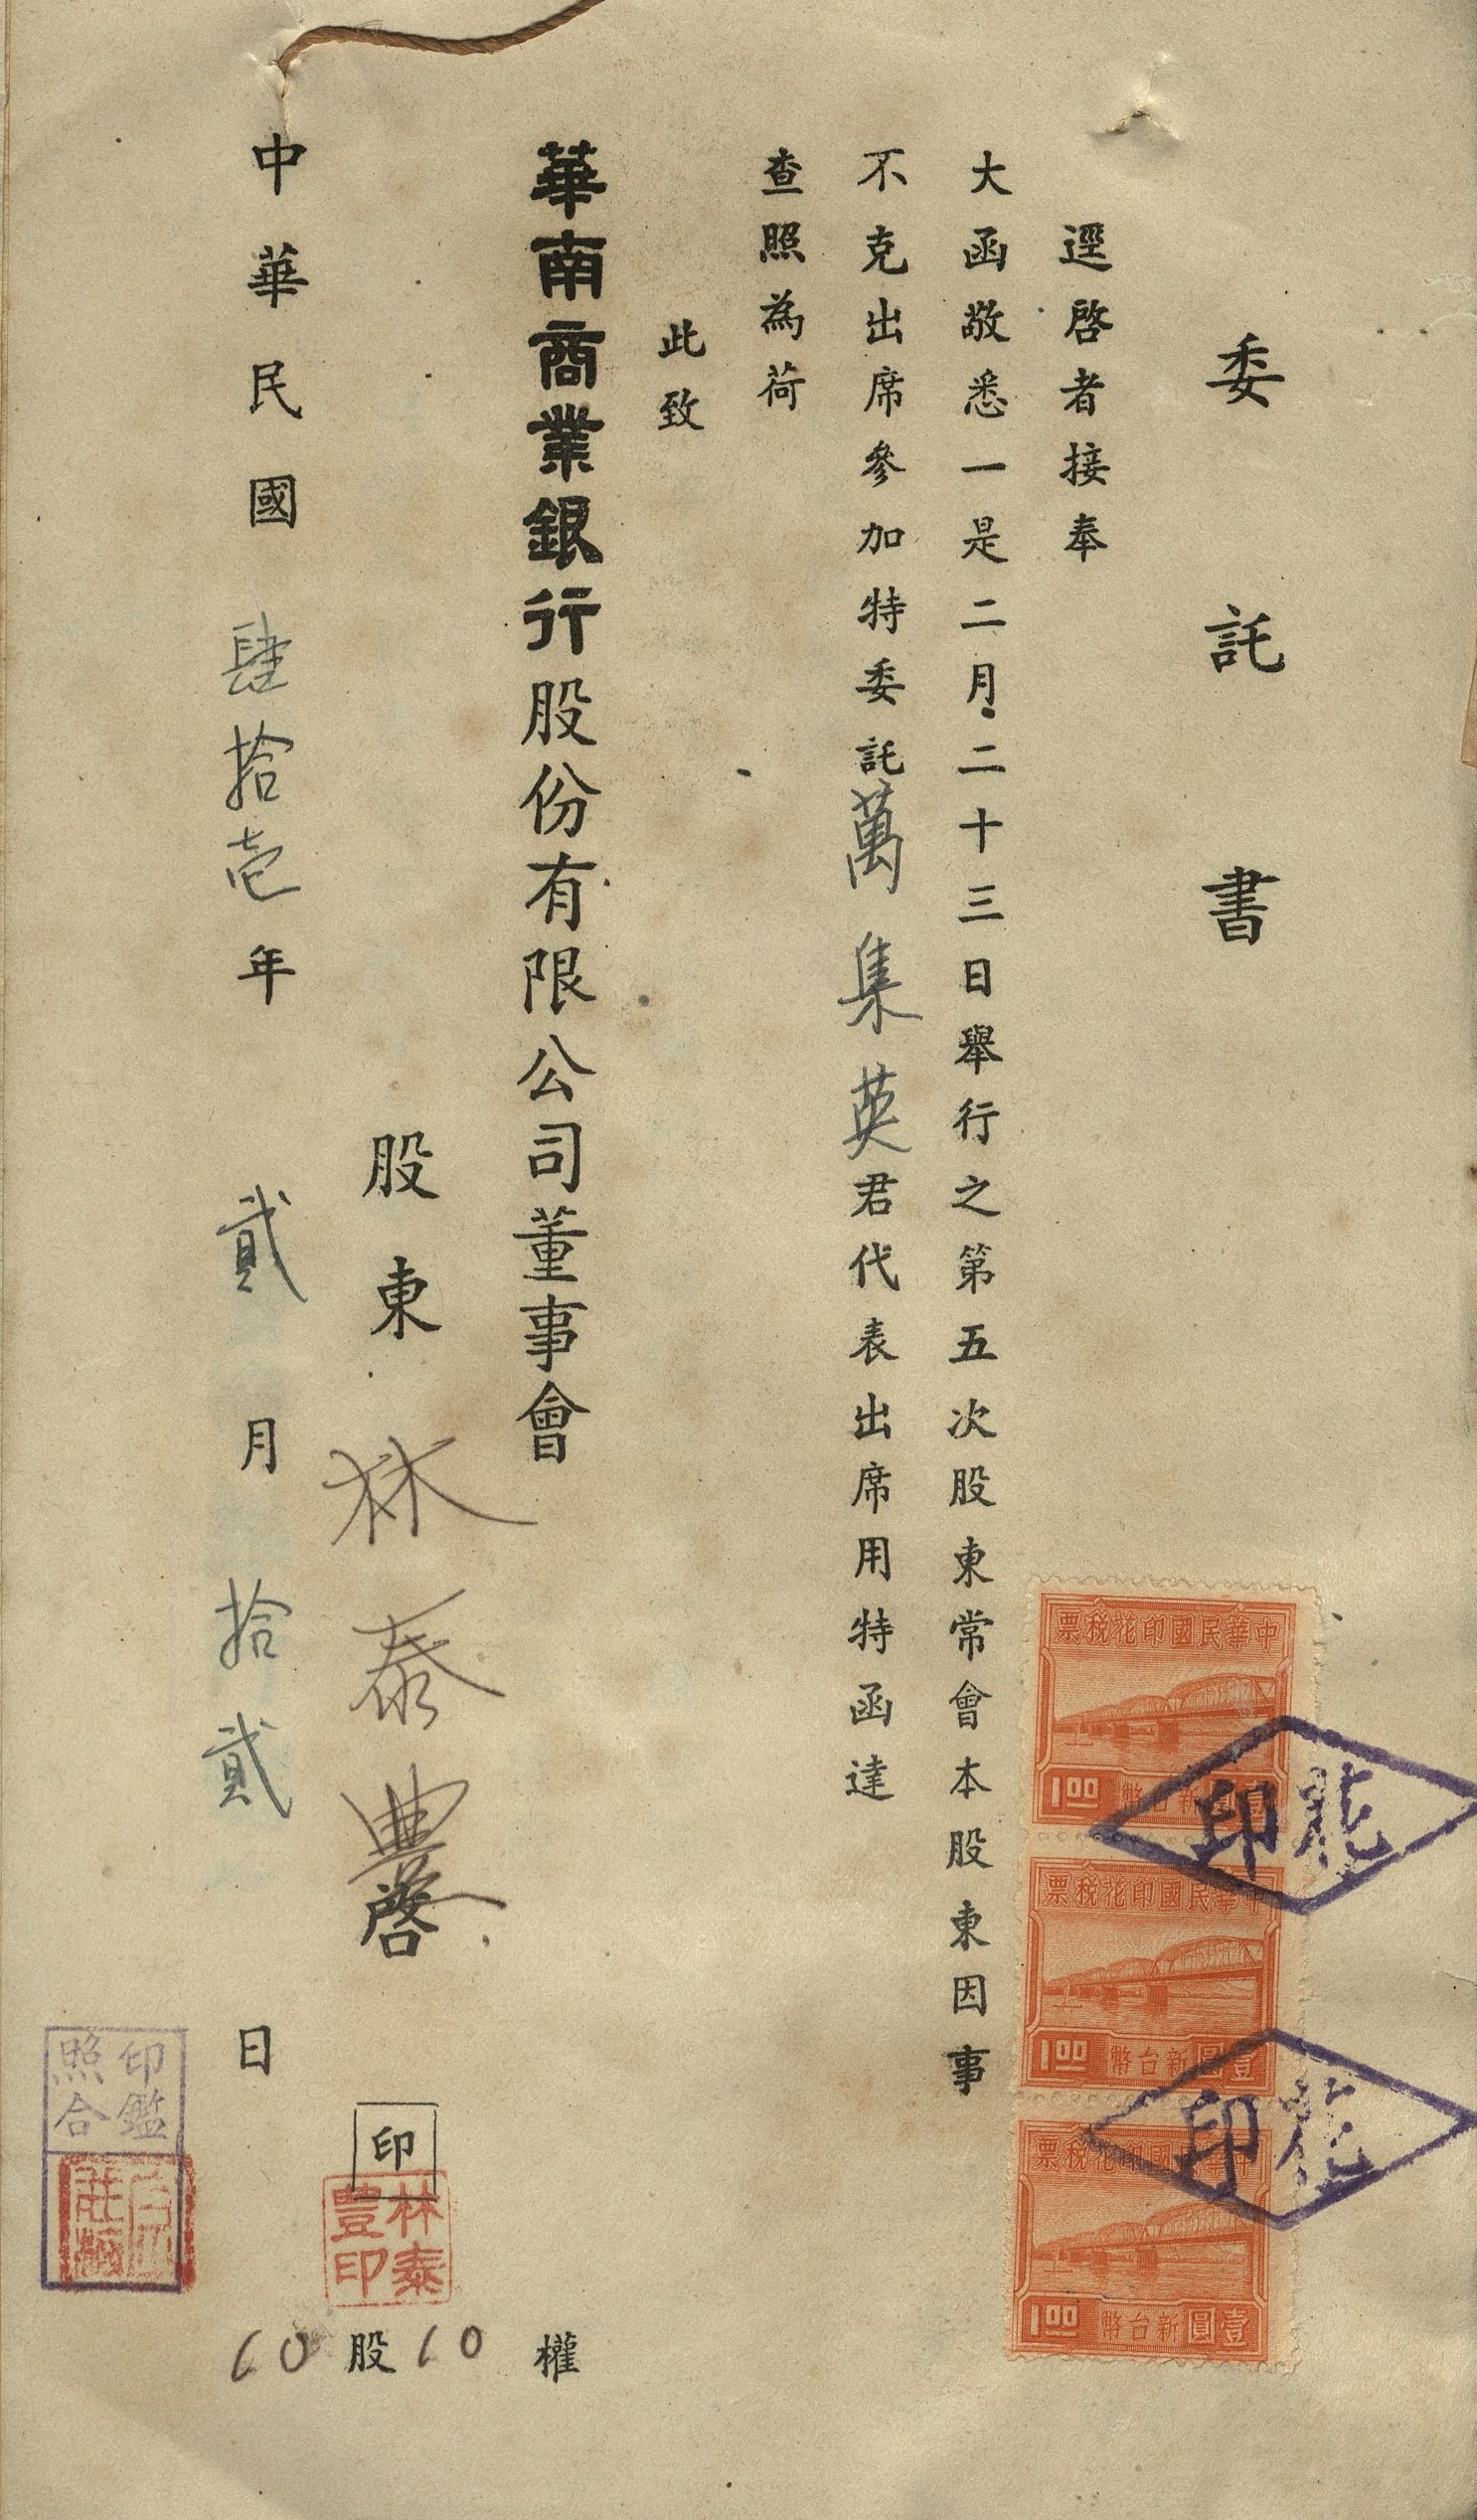 委託書
逕啓者接奉
大函敬悉一是二月二十三日舉行之第五次股東常會本股東因事
不克出席參加特委託萬集英君代表出席用特函達
查照為荷
此致
華南商業銀行股份有限公司董事會
股東林泰豐啓 印
林泰
豐印
中華民國肆拾壹年貳月拾貳日
10股10權
印鑑
照合
票稅花印國民華中
1.00 幣台新圓壹
票稅花印國民華中
1.00 幣台新圓壹
票稅花印國民華中
1.00 幣台新圓壹
印花
印花